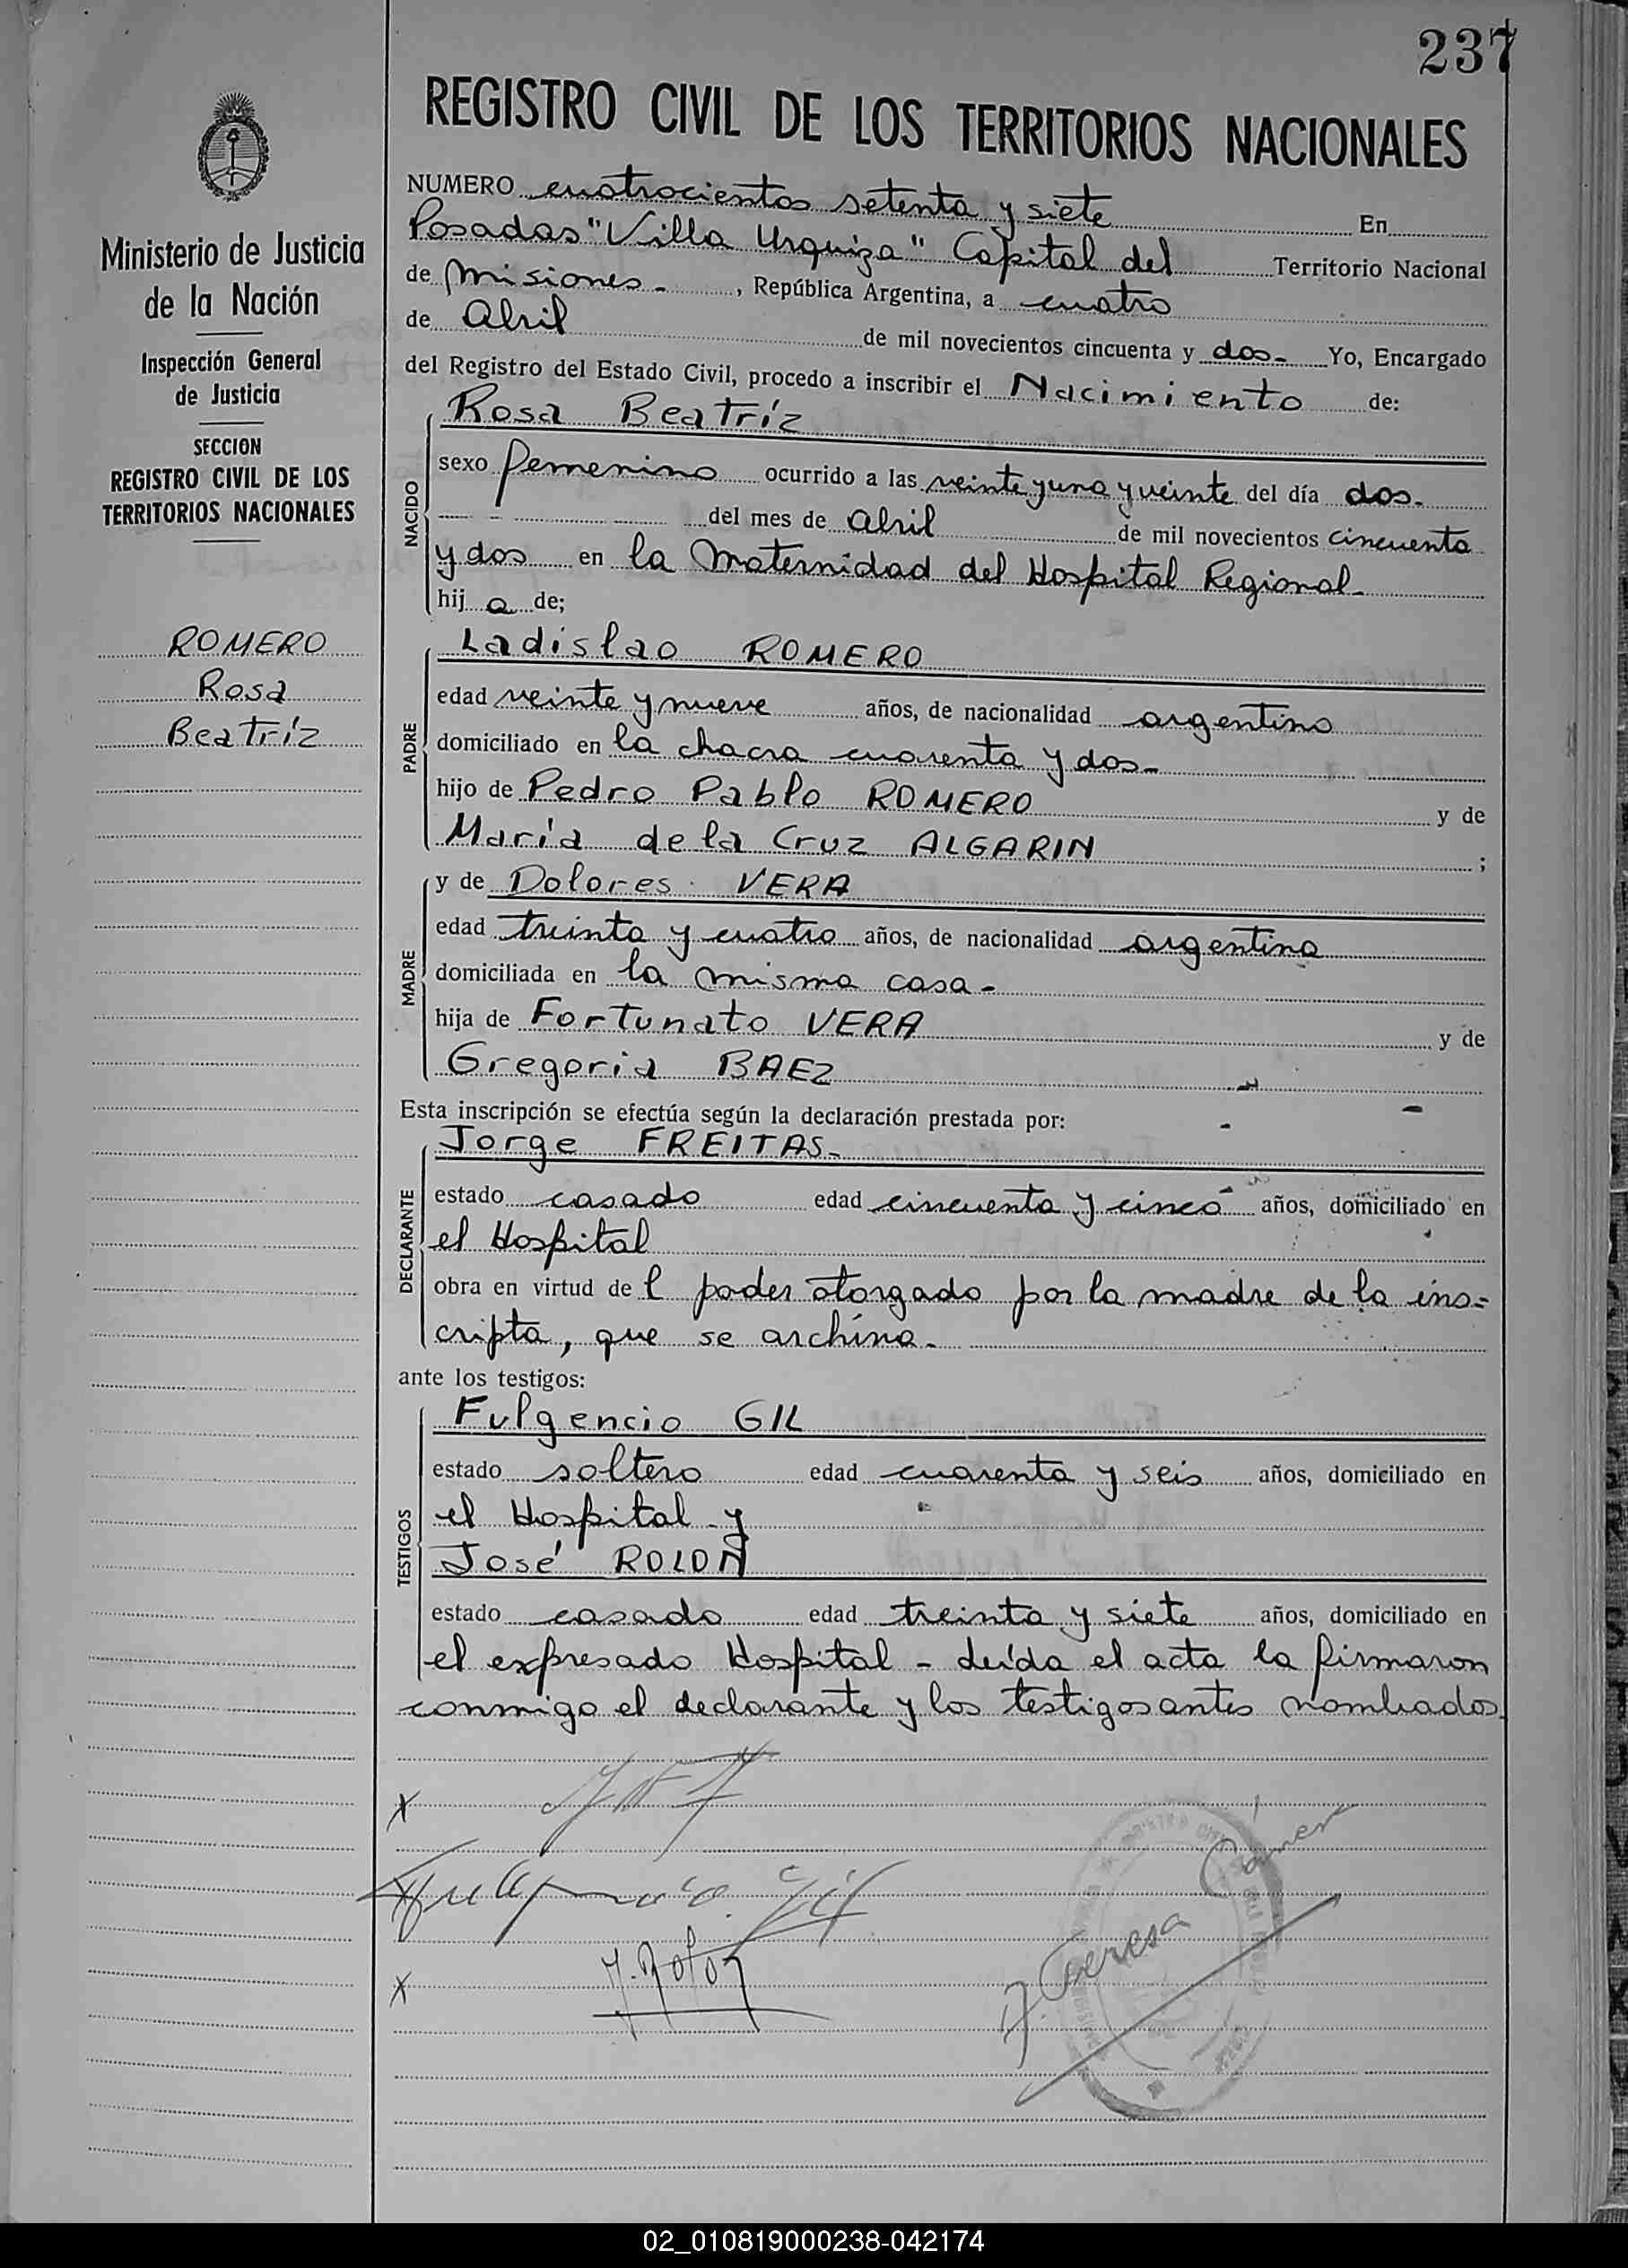 237
REGISTRO CIVIL DE LOS TERRITORIOS NACIONALES
Ministerio de Justicia
de la Nación
Inspección General
de Justicia
SECCION
REGISTRO CIVIL DE LOS
TERRITORIOS NACIONALES
ROMERO
Rosa
Beatríz
NUMERO cuatrocientos setenta y siete En
Posadas "Villa Urquiza" Capital del Territorio Nacional
de Misiones - , República Argentina, a cuatro
de Abril de mil novecientos cincuenta y dos - Yo, Encargado
del Registro del Estado Civil, procedo a inscribir el Nacimiento de:
Rosa Beatríz
NACIDO
sexo femenino ocurrido a las veinte y una y veinte del día dos -
del mes de Abril de mil novecientos cincuenta
y dos en la Maternidad del Hospital Regional -
hij a de;
Ladislao ROMERO
PADRE
edad veinte y nueve años, de nacionalidad argentino
domiciliado en la chacra cuarenta y dos -
hijo de Pedro Pablo ROMERO y de
María de la Cruz ALGARIN ;
y de Dolores VERA
MADRE
edad treinta y cuatro años, de nacionalidad argentina
domiciliada en la misma casa -
hija de Fortunato VERA y de
Gregoria BAEZ
Esta inscripción se efectúa según la declaración prestada por:
Jorge FREITAS -
DECLARANTE
estado casado edad cincuenta y cinco años, domiciliado en
el Hospital
obra en virtud de l poder otorgado por la madre de la ins=
cripta, que se archiva -
ante los testigos:
Fulgencio GIL
TESTIGOS
estado soltero edad cuarenta y seis años, domiciliado en
el Hospital y
José ROLON
estado casado edad treinta y siete años, domiciliado en
el expresado Hospital - Leída el acta la firmaron
conmigo el declarante y los testigos antes nombrados
X
Fulgencio Gil
X J. Rolon
Teresa
02_010819000238-042174